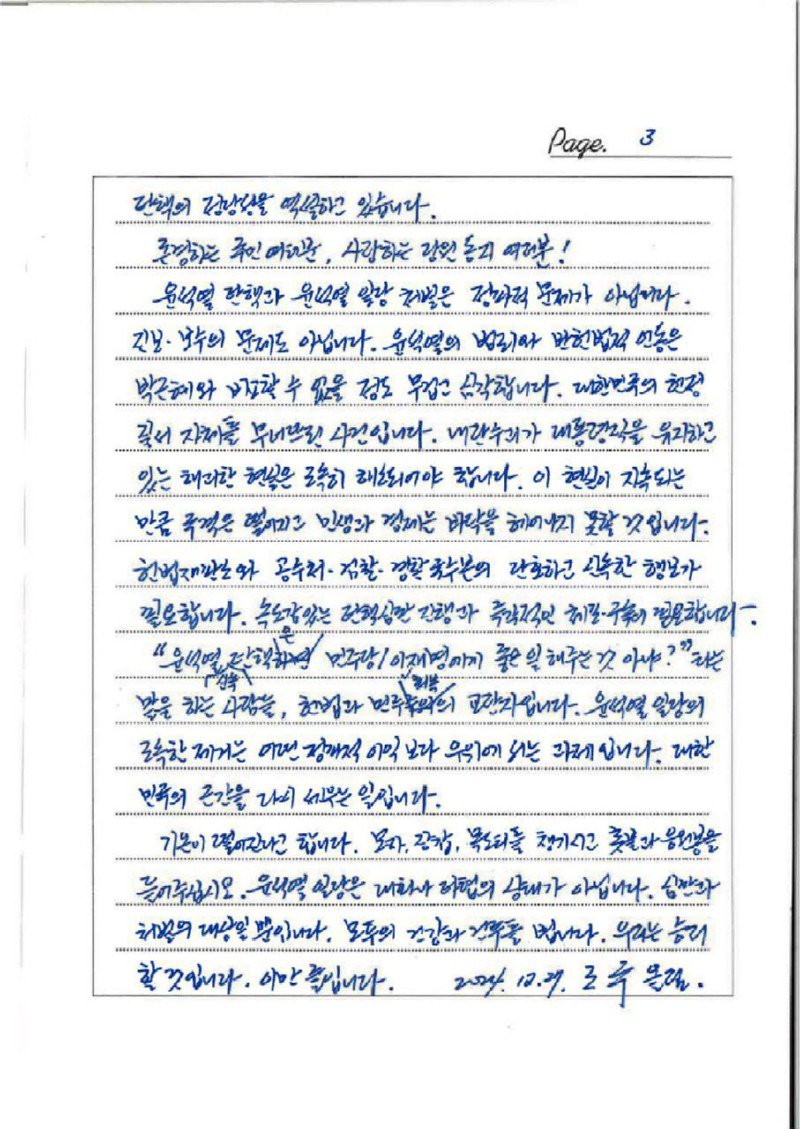 Page. 3
탄핵의 정당성을 역설하고 있습니다.
존경하는 국민 여러분, 사랑하는 당원 동지 여러분!
윤석열 탄핵과 윤석열 일당 처벌은 정파적 문제가 아닙니다.
진보·보수의 문제도 아닙니다. 윤석열의 범죄와 반헌법적 언동은
박근혜와 비교할 수 없을 정도 무겁고 심각합니다. 대한민국의 헌정
질서 자체를 무너뜨린 사건입니다. 내란수괴가 대통령직을 유지하고
있는 해괴한 현실은 조속히 해소되어야 합니다. 이 현실이 지속되는
만큼 국격은 떨어지고 민생과 경제는 바닥을 헤어나지 못할 것입니다.
헌법재판소와 공수처·검찰·경찰국수본의 단호하고 신속한 행보가
필요합니다. 속도감있는 탄핵심판 진행과 즉각적인 체포·구속이 필요합니다.
"윤석열 신속 탄핵은 민주당/이재명에게 좋은 일 해주는 것 아냐?"라는
말을 하는 사람들, 헌법과 민주 회복의 교란자입니다. 윤석열 일당의
조속한 제거는 어떤 정개적 이익보다 우위에 서는 과제입니다. 대한
민국의 근간을 다시 세우는 일입니다.
기온이 떨어진다고 합니다. 모자, 장갑, 목도리를 챙기시고 촛불과 응원봉을
들어주십시오. 윤석열 일당은 대화나 타협의 상대가 아닙니다. 심판과
처벌의 대상일 뿐입니다. 모두의 건강과 건투를 빕니다. 우리는 승리
할 것입니다. 이만 줄입니다. 2024. 12. 27. 조 국 올림.